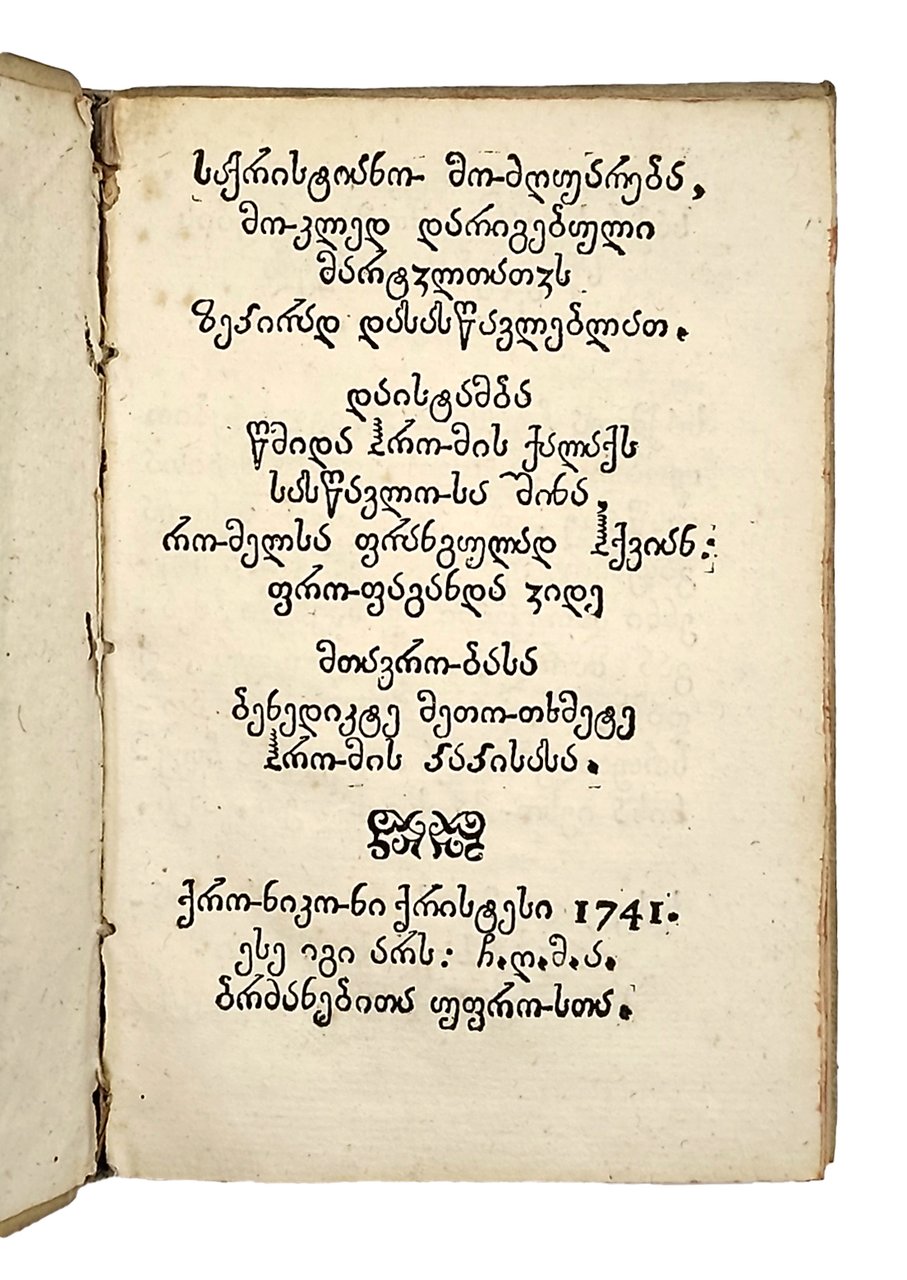 საქრისტიანო მოძღუარება,
მოკლედ დარიგებული
მარტჳლთათჳს
ზეპირად დასასწავლებლათ.
დაისტამბა
წმიდა ჰრომის ქალაქს
სასწავლოსა შინა.
რომელსა ფრანგულად ჰქვიან:
ფროფაგანდა ჳიდე
მთავრობასა
ბენედიკტე მეთოთხმეტე
ჰრომის პაპისასა.
ქრონიკონი ქრისტესი 1741.
ესე იგი არს: ჩ.ღ.მ.ა.
ბრძანებითა უფროსთა.